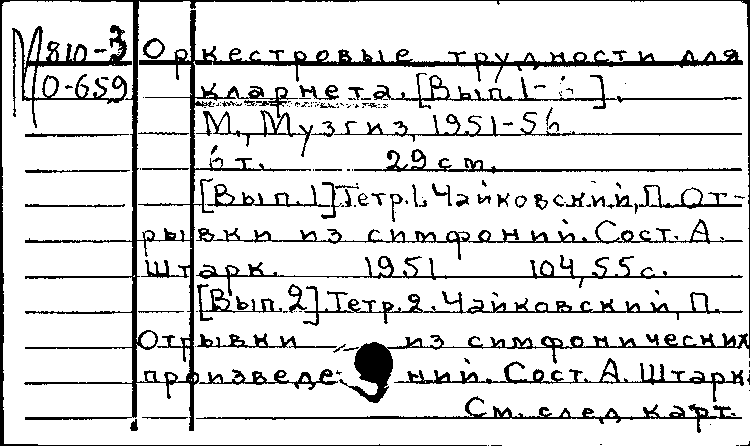 М810-3 Оркестровые трудности для
О-659 кларнета. [Вып. 1-6].
М., Музгиз, 1951-56
6 т. 29 см.
[Вып. 1] Тетр. 1. Чайковский, П. От-
рывки из симфоний. Сост. А.
Штарк. 1951 104, 55 с.
[Вып. 2]. Тетр. 2. Чайковский, П.
Отрывки из симфонических
произведений. Сост. А. Штарк
См. след. карт.